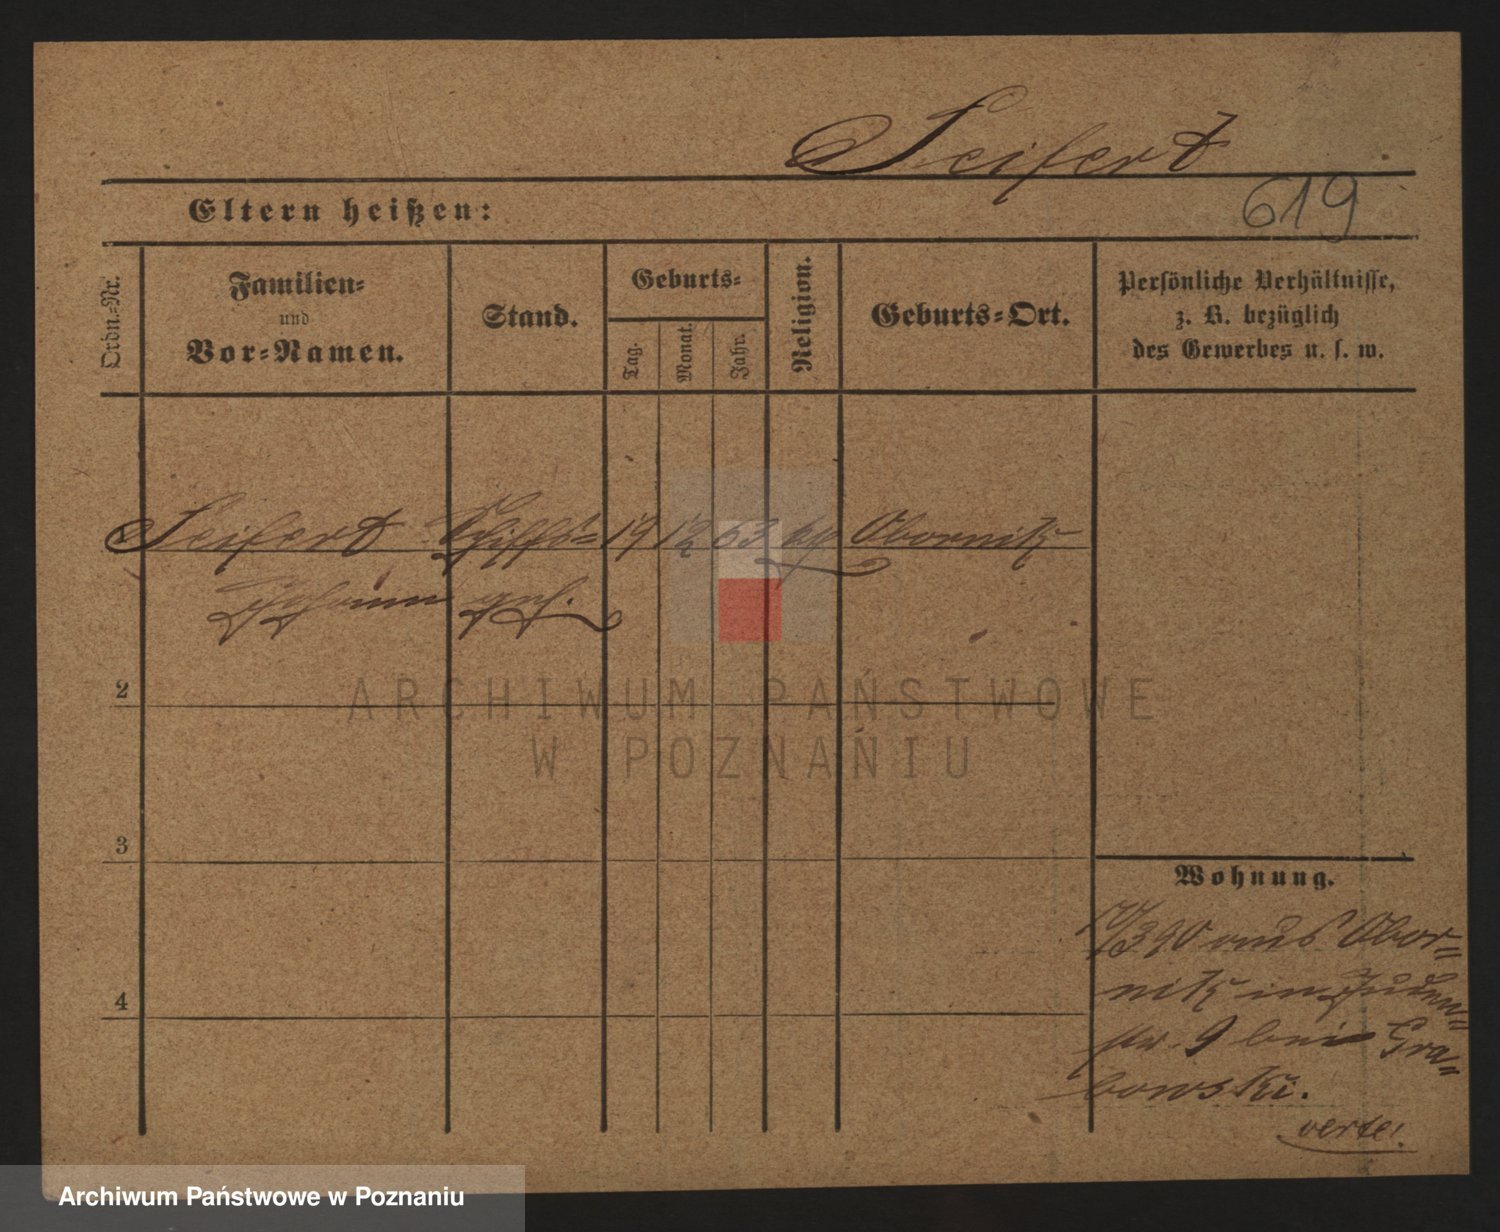 Seifert
Eltern heißen:
619
Ordn.-Nr.
Familien-
und
Vor-Namen.
Stand.
Geburts-
Tag.
Monat.
Jahr.
Religion.
Geburts-Ort.
Persönliche Verhältnisse,
z. B. bezüglich
des Gewerbes u. s. w.
Seifert Schiffs= 19 12 63 Obornik
Johann geh.
2
3
4
Wohnung.
aus Obor=
nik in Juden=
str. 9 bei Gra=
bowski.
verte!
ARCHIWUM PAŃSTWOWE
W POZNANIU
Archiwum Państwowe w Poznaniu